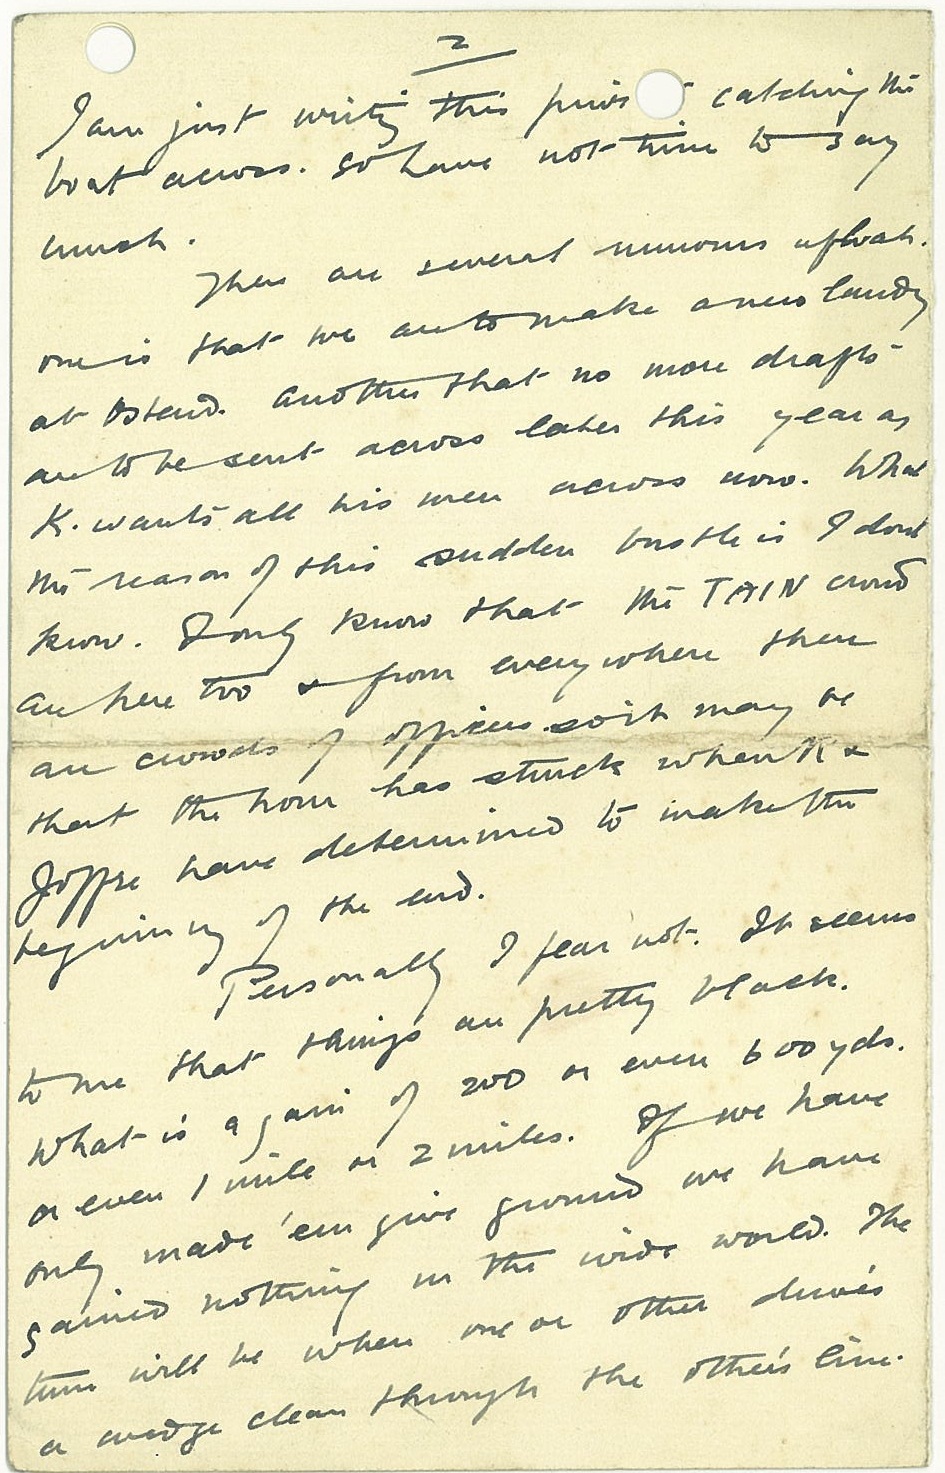 2
I am just writing this previous catching the
boat across. So have not time to say
much.
There are several rumours afloat.
one is that we are to make a new landing
at Ostend. Another that no more drafts
are to be sent across later this year as
K. wants all his men across now. What
the reason of this sudden bustle is I dont
know. I only know that the TAIN crowd
are here too & from everywhere there
are crowds of officers so it may be
that the hour has struck when K &
Joffre have determined to make the
beginning of the end.
Personally I fear not. It seems
to me that things are pretty black.
What is a gain of 200 or even 600 yds.
or even 1 mile or 2 miles. If we have
only made 'em give ground we have
gained nothing in the wide world. The
turn will be when one or other drives
a wedge clean through the other's line.